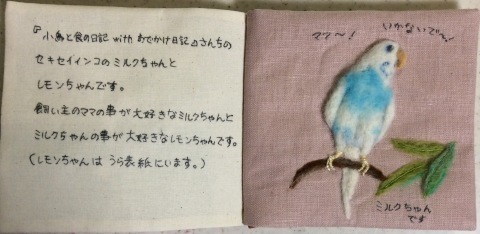 『小鳥と食の日記 with おでかけ日記』さんちの
セキセイインコのミルクちゃんと
レモンちゃんです。
飼い主のママの事が大好きなミルクちゃんと
ミルクちゃんの事が大好きなレモンちゃんです。
(レモンちゃんは うら表紙にいます。)
ママ〜!
いかないで〜!
ミルクちゃん
です